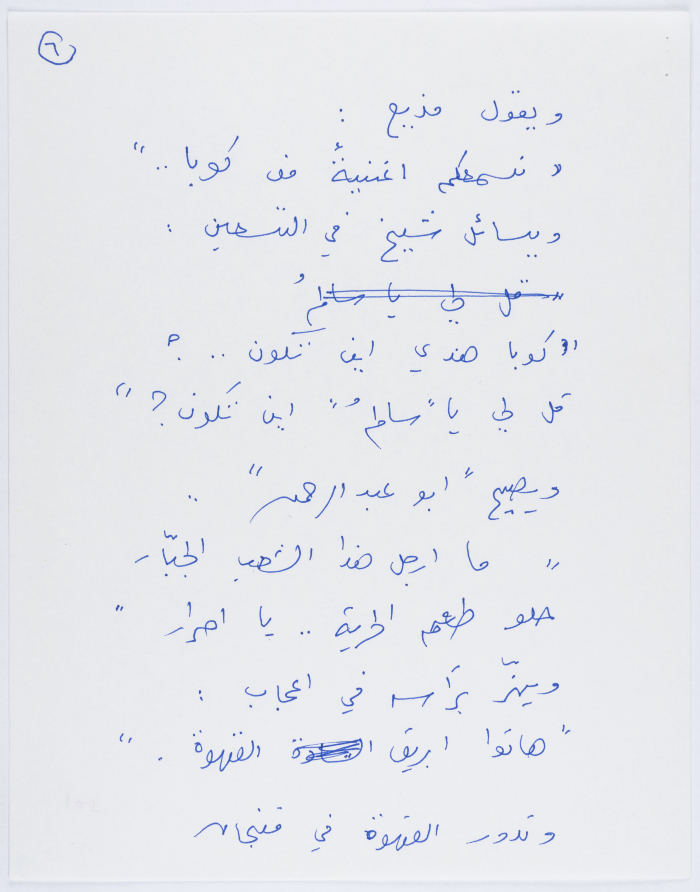 ٦
ويقول مذيع :
" نسمعكم اغنيةً من كوبا .. "
ويسائل شيخ في التسعين :
" قل لي يا سالمُ
" كوبا هذي اين تكون .. ؟
قل لي يا "سالمُ" اين تكون ؟ "
ويصيح "ابو عبد الرحمن" ..
" ما ارجل هذا الشعب الجبّار
حلو طعم الحرية .. يا احرار "
ويهزّ برأسه في اعجاب :
" هاتوا ابريق القهوة . "
وتدور القهوة في فنجان